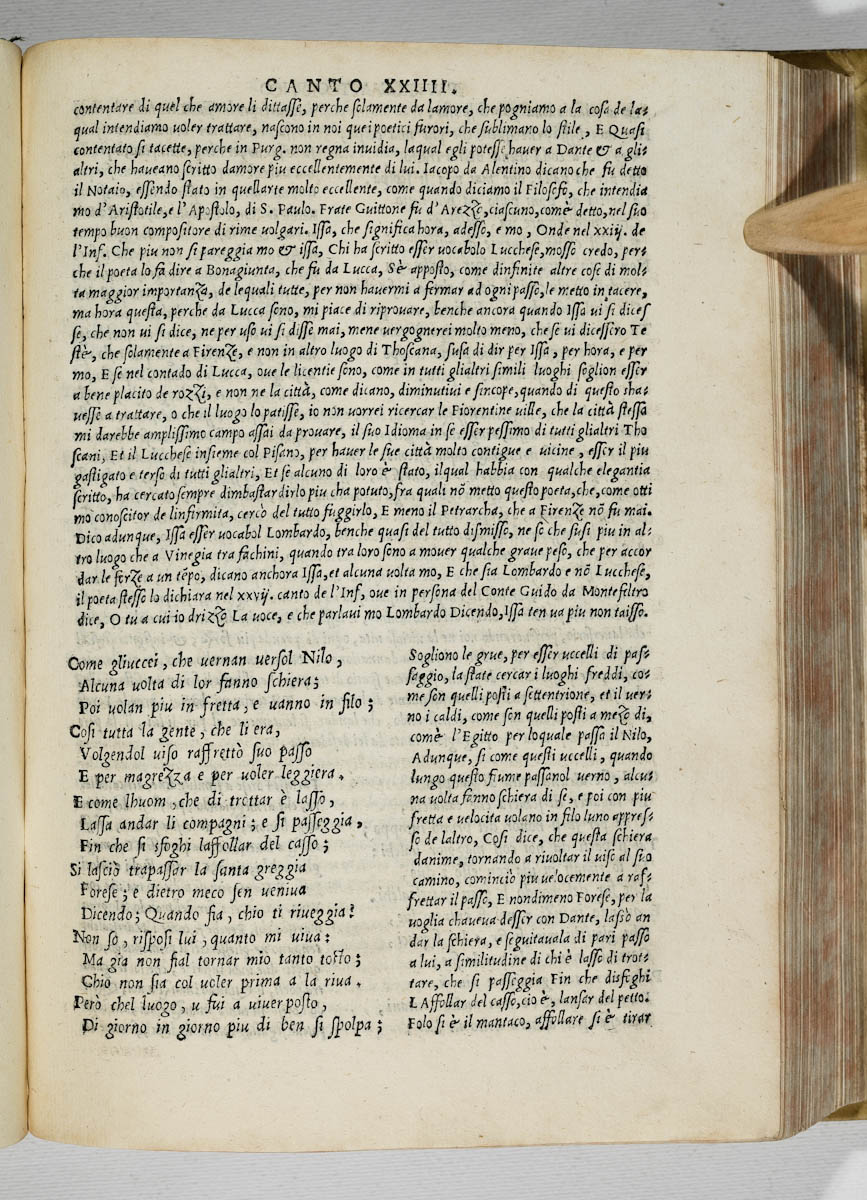 CANTO XXIIII.
contentare di quel che amore li dittasse, perche solamente da lamore, che pogniamo a la cosa de la-
qual intendiamo uoler trattare, nascono in noi quei poetici furori, che sublimano lo stile, E Quasi
contentato si tacette, perche in Purg. non regna inuidia, laqual egli potesse hauer a Dante & a gli-
altri, che haueano scritto damore piu eccellentemente di lui. Iacopo da Alentino dicano che fu detto
il Notaio, essendo stato in quellarte molto eccellente, come quando diciamo il Filosofo, che intendia
mo d'Aristotile, e l'Apostolo, di S. Paulo. Frate Guittone fu d'Arezzo, ciascuno, com'è detto, nel suo
tempo buon compositore di rime uolgari. Issa, che significa hora, adesso, e mo, Onde nel xxiij. de
l'Inf. Che piu non si pareggia mo & issa, Chi ha scritto esser uocabolo Lucchese, mosso credo, per-
che il poeta lo fa dire a Bonagiunta, che fu da Lucca, S'è apposto, come dinfinite altre cose di mol-
ta maggior importanza, de lequali tutte, per non hauermi a fermar ad ogni passo, le metto in tacere,
ma hora questa, perche da Lucca sono, mi piace di riprouare, benche ancora quando Issa ui si dices
se, che non ui si dice, ne per uso ui si disse mai, mene uergognerei molto meno, che se ui dicessero Te
stè, che solamente a Firenze, e non in altro luogo di Thoscana, susa di dir per Issa, per hora, e per
mo, E se nel contado di Lucca, oue le licentie sono, come in tutti glialtri simili luoghi soglion esser
a bene placito de rozzi, e non ne la città, come dicano, diminutiui e sincope, quando di questo sha-
uesse a trattare, o che il luogo lo patisse, io non uorrei ricercar le Fiorentine uille, che la città stessa
mi darebbe amplissimo campo assai da prouare, il suo Idioma in se esser pessimo di tutti glialtri Tho
scani, Et il Lucchese insieme col Pisano, per hauer le sue città molto contigue e uicine, esser il piu
gastigato e terso di tutti glialtri, Et se alcuno di loro è stato, ilqual habbia con qualche elegantia
scritto, ha cercato sempre dimbastardirlo piu cha potuto, fra quali nõ metto questo poeta, che, come otti
mo conoscitor de linfirmita, cercò del tutto fuggirlo, E meno il Petrarcha, che a Firenze nõ fu mai.
Dico adunque, Issa esser uocabol Lombardo, benche quasi del tutto dismisso, ne so che susi piu in al-
tro luogo che a Vinegia tra fachini, quando tra loro sono a mouer qualche graue peso, che per accor
dar le forze a un tẽpo, dicano anchora Issa, et alcuna uolta mo, E che sia Lombardo e nõ Lucchese,
il poeta stesso lo dichiara nel xxvij. canto de l'Inf, oue in persona del Conte Guido da Montefeltro
dice, O tu a cui io drizzo La uoce, e che parlaui mo Lombardo Dicendo, Issa ten ua piu non taisso.
Come gliuccei, che uernan uersol Nilo,
Alcuna uolta di lor fanno schiera;
Poi uolan piu in fretta, e uanno in filo;
Cosi tutta la gente, che li era,
Volgendol uiso raffrettò suo passo
E per magrezza e per uoler leggiera.
E come lhuom, che di trottar è lasso,
Lassa andar li compagni; e si passeggia,
Fin che si sfoghi laffollar del casso;
Si lasciò trapassar la santa greggia
Forese; e dietro meco sen ueniua
Dicendo; Quando fia, chio ti riueggia?
Non so, risposi lui, quanto mi uiua:
Ma gia non fial tornar mio tanto tosto;
Chio non sia col uoler prima a la riua.
Però chel luogo, u fui a uiuer posto,
Di giorno in giorno piu di ben si spolpa;
Sogliono le grue, per esser uccelli di pas-
saggio, la state cercar i luoghi freddi, co-
me son quelli posti a settentrione, et il uer-
no i caldi, come son quelli posti a mezo di,
com'è l'Egitto per loquale passa il Nilo,
Adunque, si come questi uccelli, quando
lungo questo fiume passanol uerno, alcu-
na uolta fanno schiera di se, e poi con piu
fretta e uelocita uolano in filo luno appres-
so de laltro, Cosi dice, che questa schiera
danime, tornando a riuoltar il uiso al suo
camino, cominciò piu uelocemente a raf-
frettar il passo, E nondimeno Forese, per la
uoglia chaueua desser con Dante, lasciò an
dar la schiera, e seguitaua di pari passo
a lui, a similitudine di chi è lasso di trot-
tare, che si passeggia Fin che disfoghi
L Affollar del casso, cio è, lansar del petto.
Folo si è il mantaco, affollare si è tirar